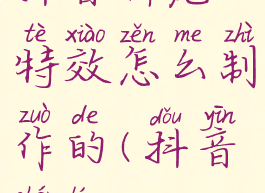 tè xiào zěn me zhì
特效怎么制
zuò de dǒu yīn
作的(抖音